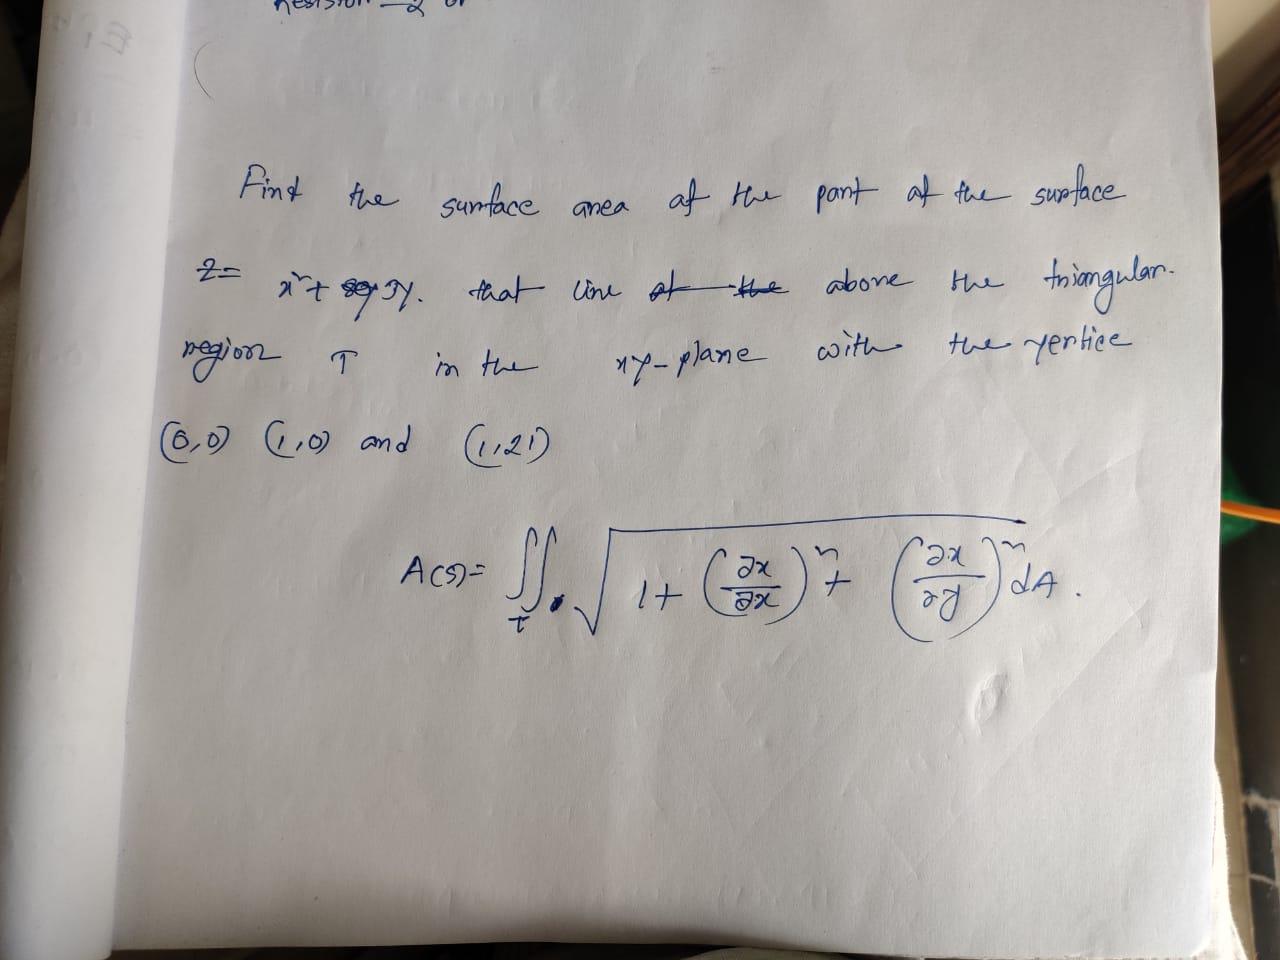 Find the surface area of the part of the surface
z= x²+ 3y. that line above the triangular
region T in the xy-plane with the vertice
(0,0) (1,0) and (1,21)
A(s)= ∬_T √(1+ (∂x/∂x)² + (∂x/∂y)²) dA.